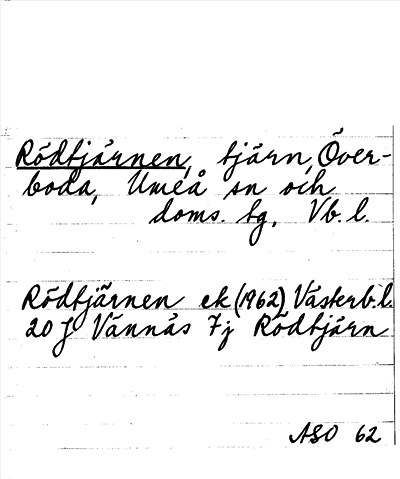 Rödtjärnen, tjärn, Över-
boda, Umeå sn och
doms. tg, Vb. l.
Rödtjärnen ek (1962) Västerb.l.
20 J Vännäs 7j Rödtjärn
ASO 62